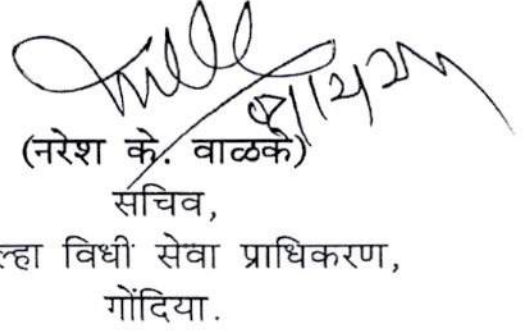 (नरेश के. वाळके)
सचिव,
ल्हा विधी सेवा प्राधिकरण,
गोंदिया.